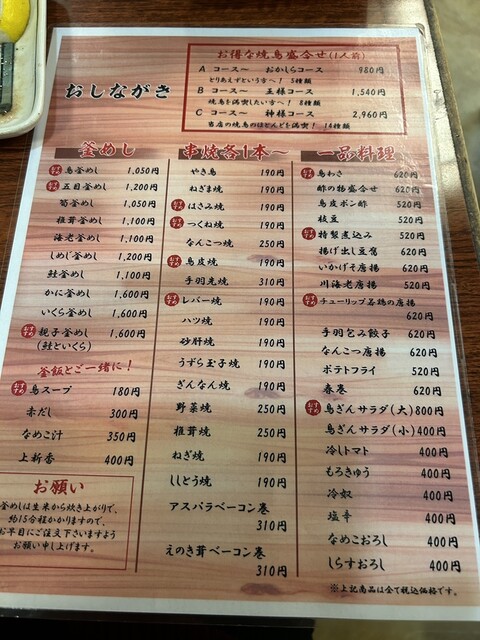 おしながき
お得な焼鳥盛合せ(1人前)
A コース～ おかしらコース 980円
とりあえずという方へ! 5種類
B コース～ 王様コース 1,540円
焼鳥を満喫したい方へ! 8種類
C コース～ 神様コース 2,960円
当店の焼鳥のほとんどを満喫! 14種類
釜めし
おすすめ 鳥釜めし 1,050円
おすすめ 五目釜めし 1,200円
筍釜めし 1,050円
椎茸釜めし 1,100円
海老釜めし 1,100円
しめじ釜めし 1,200円
鮭釜めし 1,100円
かに釜めし 1,600円
いくら釜めし 1,600円
おすすめ 親子釜めし 1,600円
(鮭といくら)
釜飯とご一緒に!
おすすめ 鳥スープ 180円
赤だし 300円
なめこ汁 350円
上新香 400円
お願い
釜めしは生米から炊き上がりで、
約15分程かかりますので、
お早目にご注文下さいますよう
お願い申し上げます。
串焼各1本～
やき鳥 190円
ねぎま焼 190円
おすすめ はさみ焼 190円
おすすめ つくね焼 190円
なんこつ焼 250円
おすすめ 鳥皮焼 190円
手羽先焼 310円
おすすめ レバー焼 190円
ハツ焼 190円
砂肝焼 190円
うずら玉子焼 190円
ぎんなん焼 190円
野菜焼 250円
椎茸焼 250円
ねぎ焼 190円
ししとう焼 190円
アスパラベーコン巻
310円
えのき茸ベーコン巻
310円
一品料理
おすすめ 鳥わさ 620円
酢の物盛合せ 620円
鳥皮ポン酢 520円
枝豆 520円
おすすめ 特製煮込み 520円
揚げ出し豆腐 620円
いかげそ唐揚 620円
川海老唐揚 520円
おすすめ チューリップ若鶏の唐揚
620円
手羽包み餃子 620円
なんこつ唐揚 620円
ポテトフライ 520円
春巻 620円
おすすめ 鳥ぎんサラダ(大) 800円
鳥ぎんサラダ(小) 400円
冷しトマト 400円
もろきゅう 400円
冷奴 400円
塩辛 400円
なめこおろし 400円
しらすおろし 400円
※上記商品は全て税込価格です。